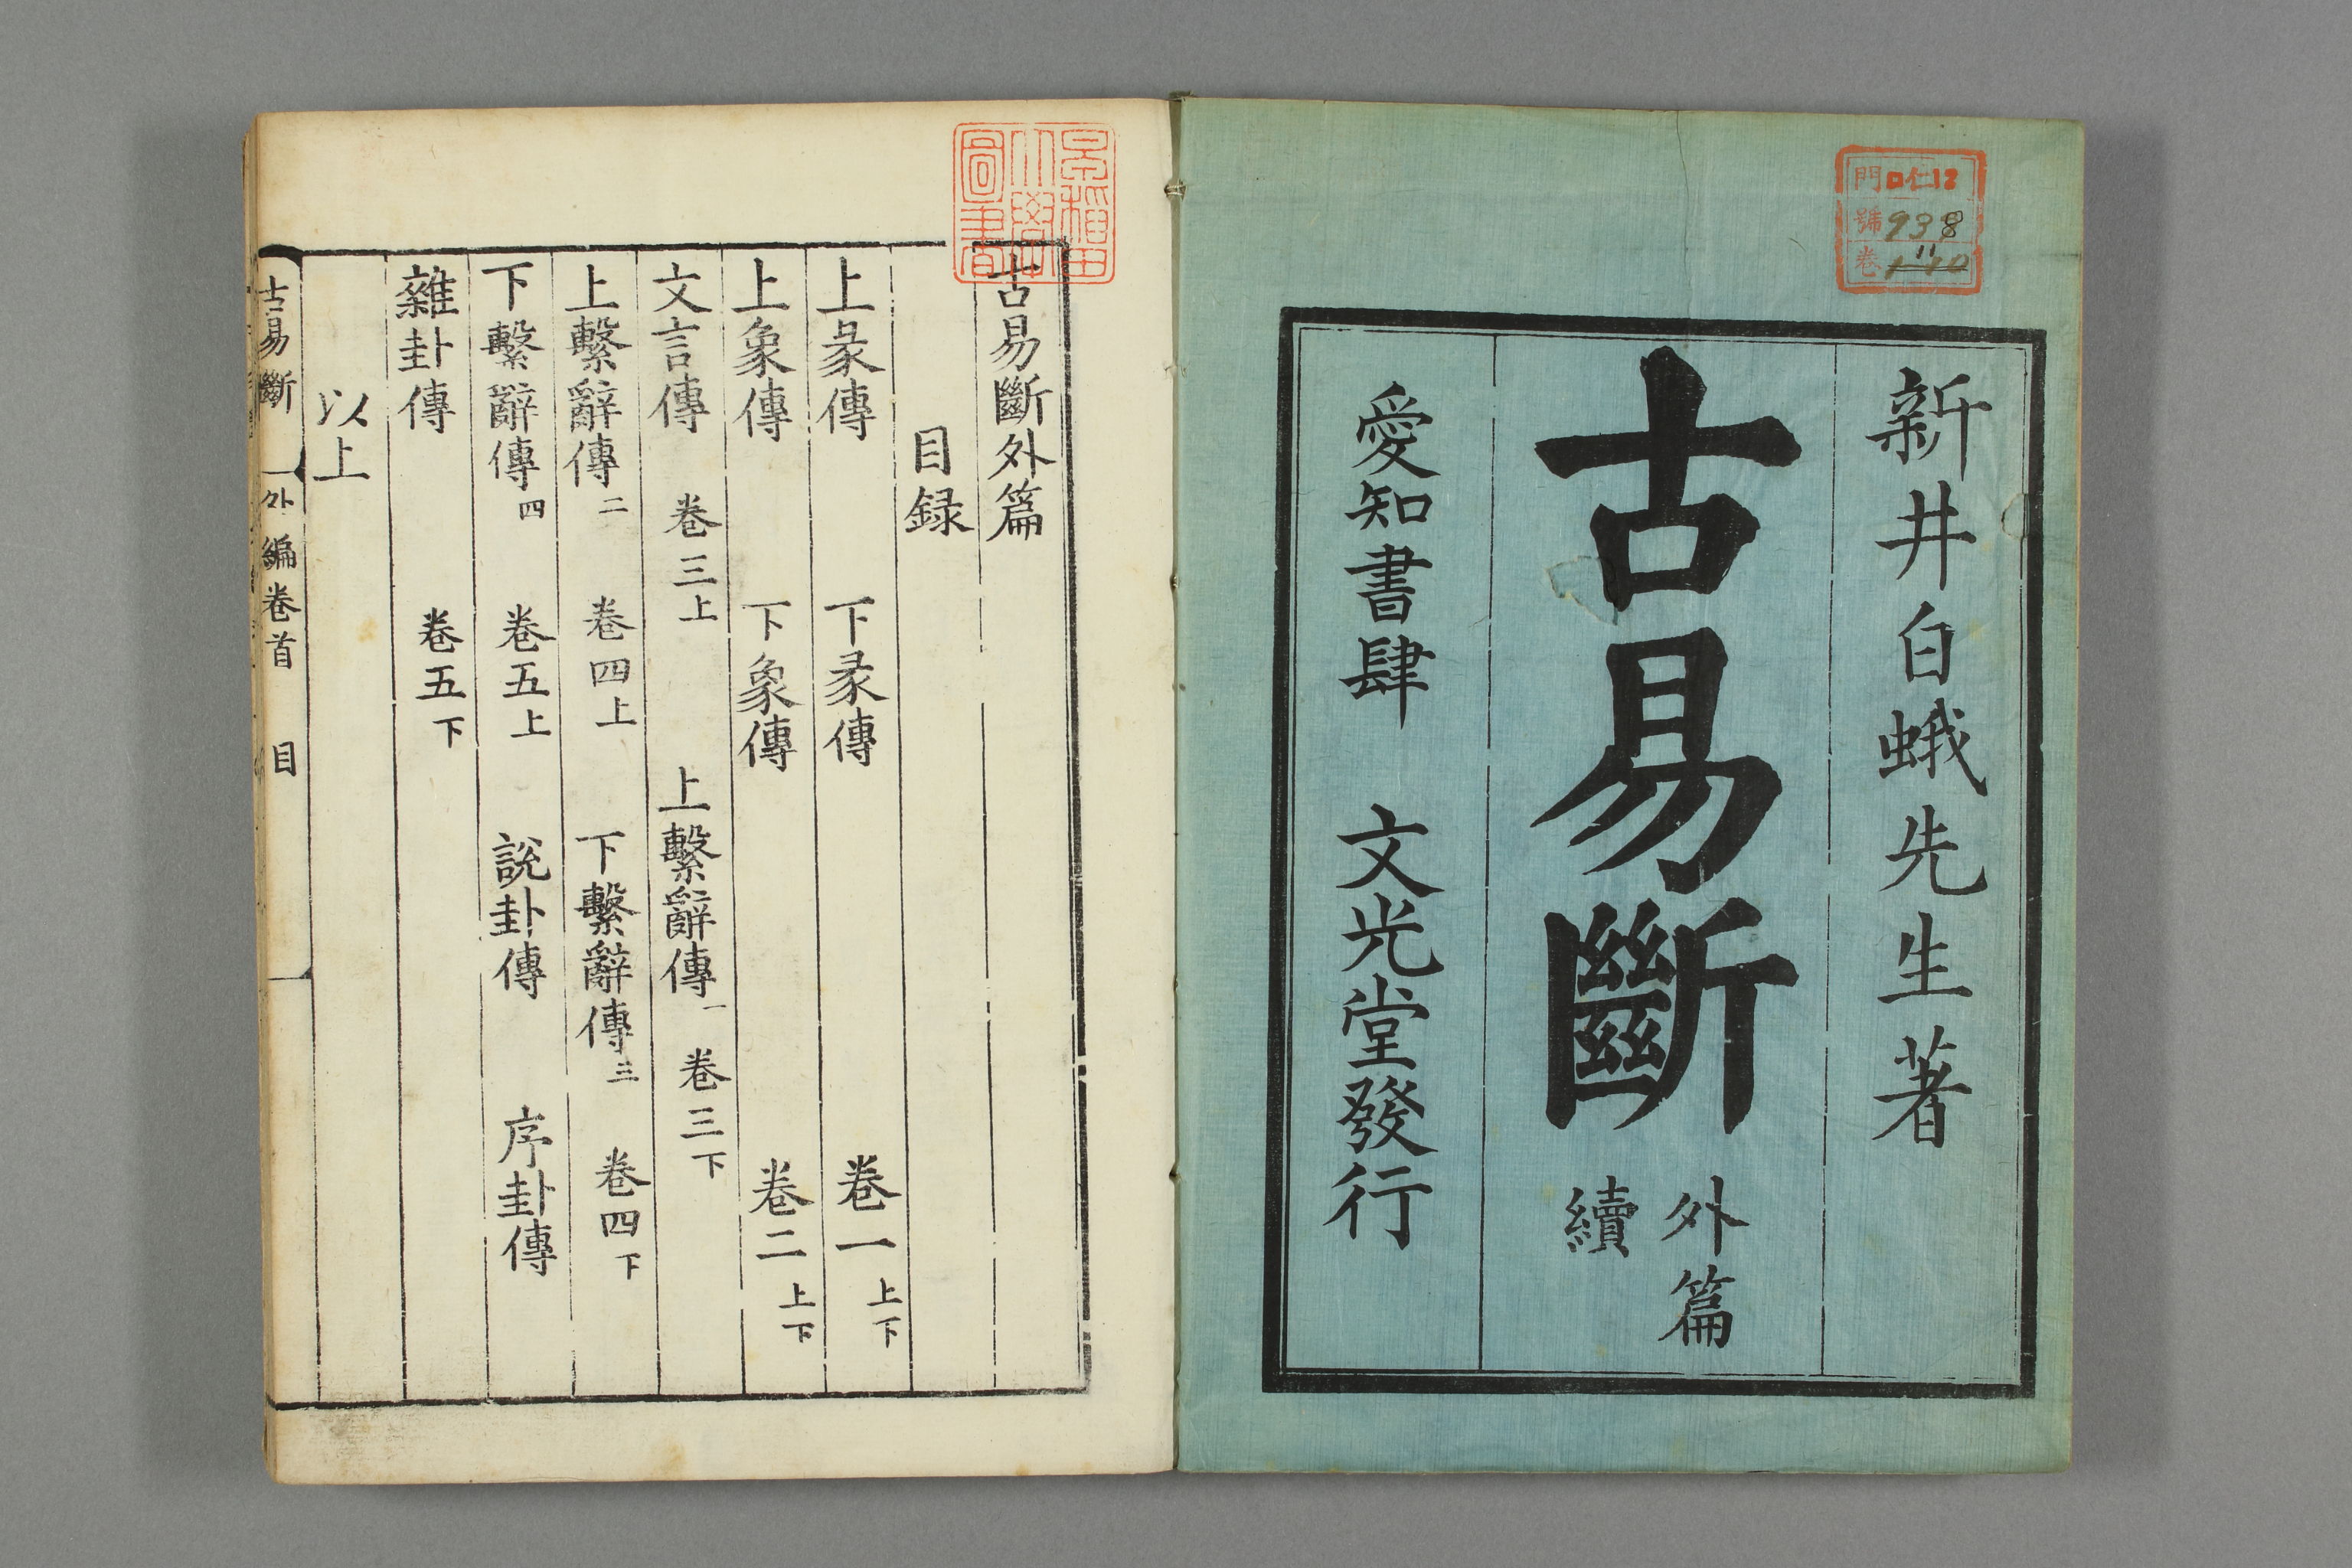 門 ロ仁12
號 938
卷 11
新井白蛾先生著
古易斷 外篇
續
愛知書肆 文光堂發行
早稻田
大學
圖書
古易斷外篇
目録
上彖傳 下彖傳 卷一上下
上象傳 下象傳 卷二上下
文言傳 卷三上 上繫辭傳一 卷三下
上繫辭傳二 卷四上 下繫辭傳三 卷四下
下繫辭傳四 卷五上 說卦傳 序卦傳
雜卦傳 卷五下
以上
古易斷 外編卷首 目